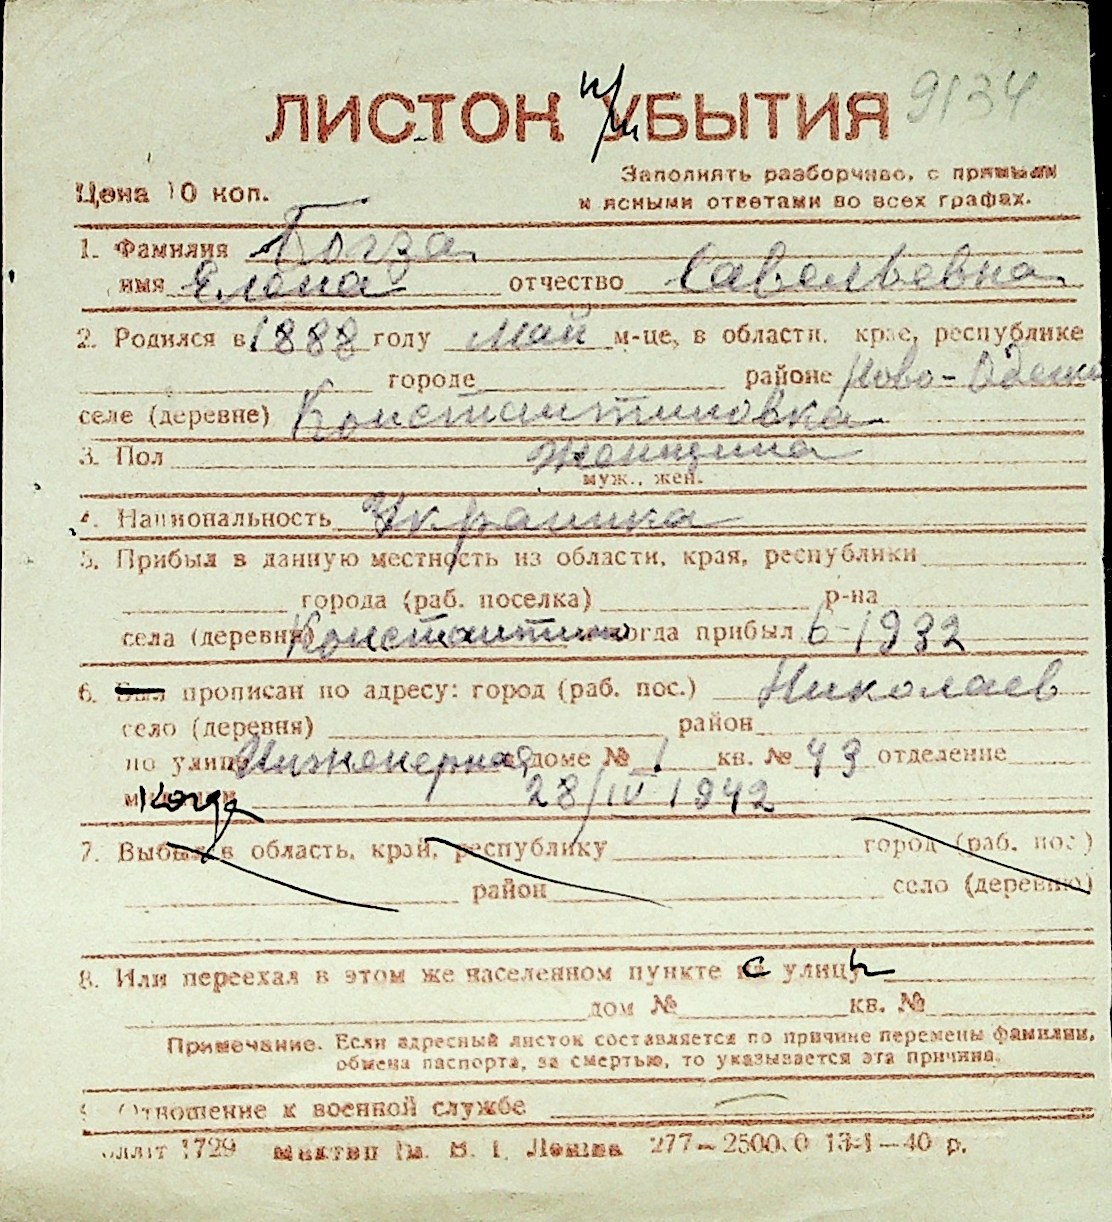 9134
ЛИСТОК при УБЫТИЯ
Цена 10 коп.
Заполнять разборчиво, с прямыми
и ясными ответами во всех графах.
1. Фамилия Богза
имя Елена отчество Савельевна
2. Родился в 1888 году май м-це, в области, крае, республике
городе районе Ново-Одесс
селе (деревне) Константиновка
3. Пол женщина
муж., жен.
4. Национальность Украинка
5. Прибыл в данную местность из области, края, республики
города (раб. поселка) р-на
села (деревни) Константин когда прибыл 6-1932
6. Был прописан по адресу: город (раб. пос.) Николаев
село (деревня) район
по улице Инженерная доме № 1 кв. № 43 отделение
Когда 28/IV 1942
7. Выбыл в область, край, республику город (раб. пос.)
район село (деревню)
8. Или переехал в этом же населенном пункте с улицы
дом № кв. №
Примечание. Если адресный листок составляется по причине перемены фамилии,
обмена паспорта, за смертью, то указывается эта причина.
9. Отношение к военной службе
1729 277—2500.0 13-I—40 р.